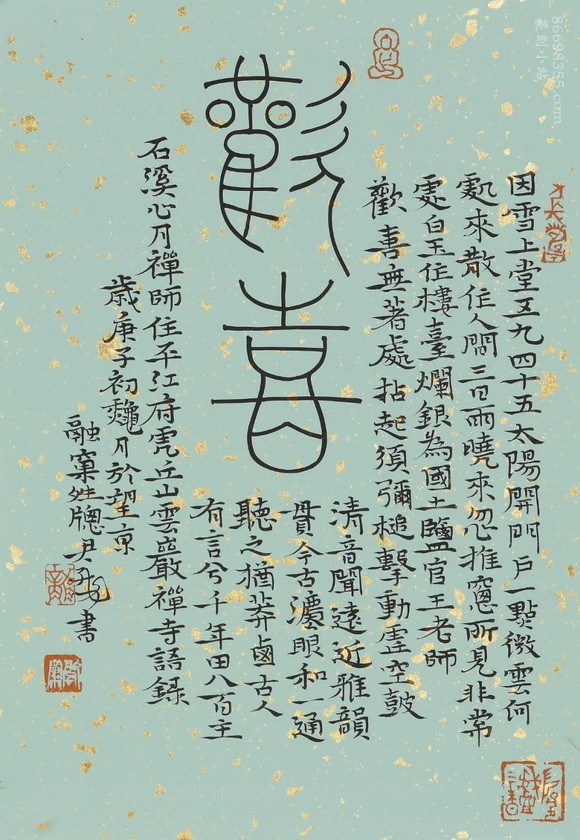 歡喜
因雪上堂五九四十五太陽開門戶一點微雲何
處來散作人間三日雨曉來忽推窗所見非常
處白玉作樓臺爛銀為國土鹽官王老師
歡喜無著處拈起須彌槌擊動虛空鼓
清音聞遠近雅韻
貫今古瀍眼和一通
聽之猶莽鹵古人
有言兮千年田八百主
石溪心月禪師住平江府虎丘山雲巖禪寺語錄
歲庚子初
月於望京
融窠
書
86698355.com